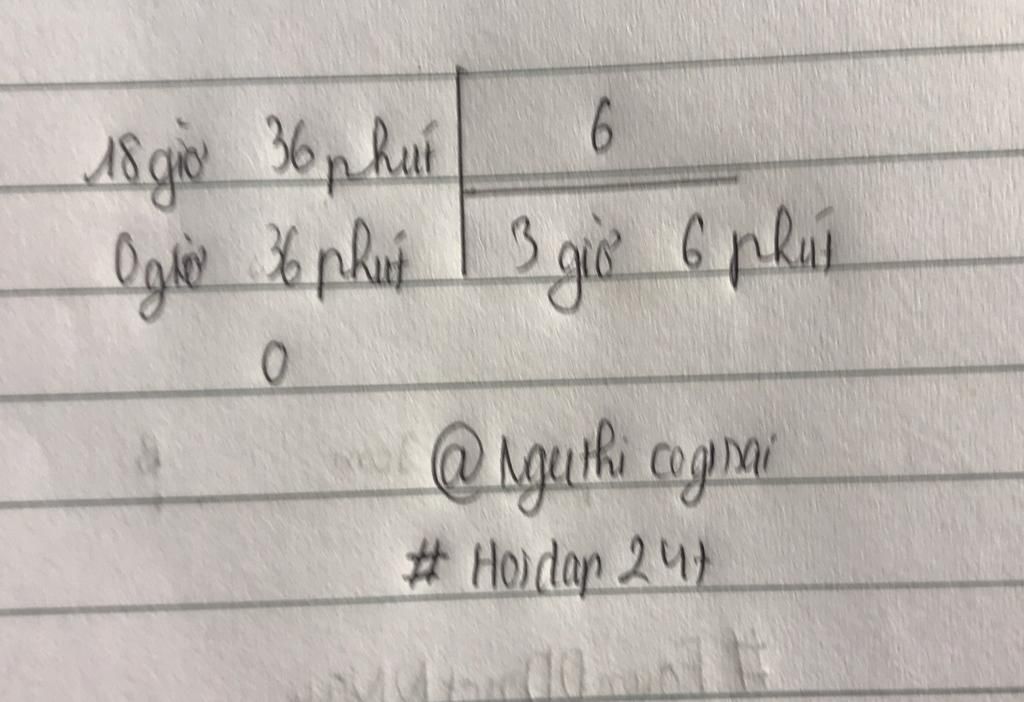 18 giờ 36 phút 6
0 giờ 36 phút 3 giờ 6 phút
0
@ Nguthi coginai
# Hoidap 247